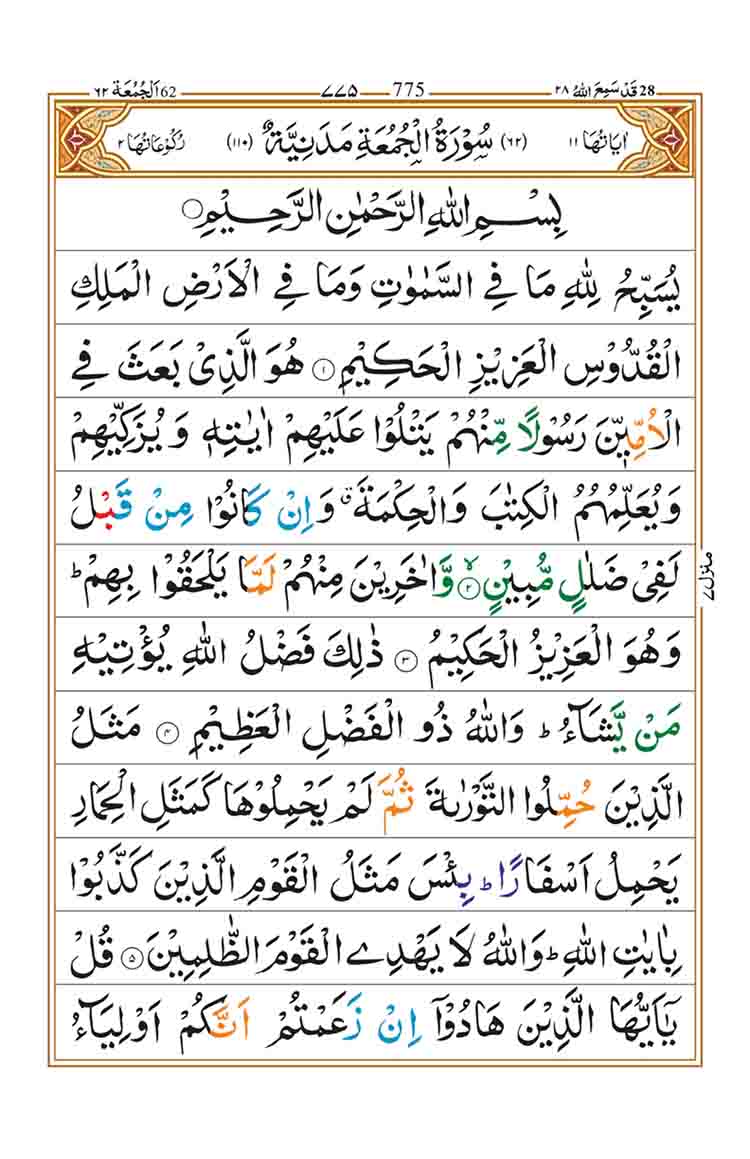 28 قَدْ سَمِعَ اللّٰهُ ۲۸ 775 ۷۷۵ 62 اَلْجُمُعَة ۶۲
اٰيَاتُهَا ۱۱ (۶۲) سُوْرَةُ الْجُمُعَةِ مَدَنِيَّةٌ (۱۱۰) رُكُوْعَاتُهَا ۲
بِسْمِ اللّٰهِ الرَّحْمٰنِ الرَّحِيْمِ۝
يُسَبِّحُ لِلّٰهِ مَا فِي السَّمٰوٰتِ وَمَا فِي الْاَرْضِ الْمَلِكِ
الْقُدُّوْسِ الْعَزِيْزِ الْحَكِيْمِ ۝۱ هُوَ الَّذِيْ بَعَثَ فِي
الْاُمِّيّٖنَ رَسُوْلًا مِّنْهُمْ يَتْلُوْا عَلَيْهِمْ اٰيٰتِهٖ وَيُزَكِّيْهِمْ
وَيُعَلِّمُهُمُ الْكِتٰبَ وَالْحِكْمَةَ ۗ وَاِنْ كَانُوْا مِنْ قَبْلُ
لَفِيْ ضَلٰلٍ مُّبِيْنٍ ۝۲ۙ وَّاٰخَرِيْنَ مِنْهُمْ لَمَّا يَلْحَقُوْا بِهِمْ ؕ
وَهُوَ الْعَزِيْزُ الْحَكِيْمُ ۝۳ ذٰلِكَ فَضْلُ اللّٰهِ يُؤْتِيْهِ
مَنْ يَّشَآءُ ؕ وَاللّٰهُ ذُو الْفَضْلِ الْعَظِيْمِ ۝۴ مَثَلُ
الَّذِيْنَ حُمِّلُوا التَّوْرٰىةَ ثُمَّ لَمْ يَحْمِلُوْهَا كَمَثَلِ الْحِمَارِ
يَحْمِلُ اَسْفَارًا ؕ بِئْسَ مَثَلُ الْقَوْمِ الَّذِيْنَ كَذَّبُوْا
بِاٰيٰتِ اللّٰهِ ؕ وَاللّٰهُ لَا يَهْدِي الْقَوْمَ الظّٰلِمِيْنَ ۝۵ قُلْ
يٰۤاَيُّهَا الَّذِيْنَ هَادُوْۤا اِنْ زَعَمْتُمْ اَنَّكُمْ اَوْلِيَآءُ
منزل ۷